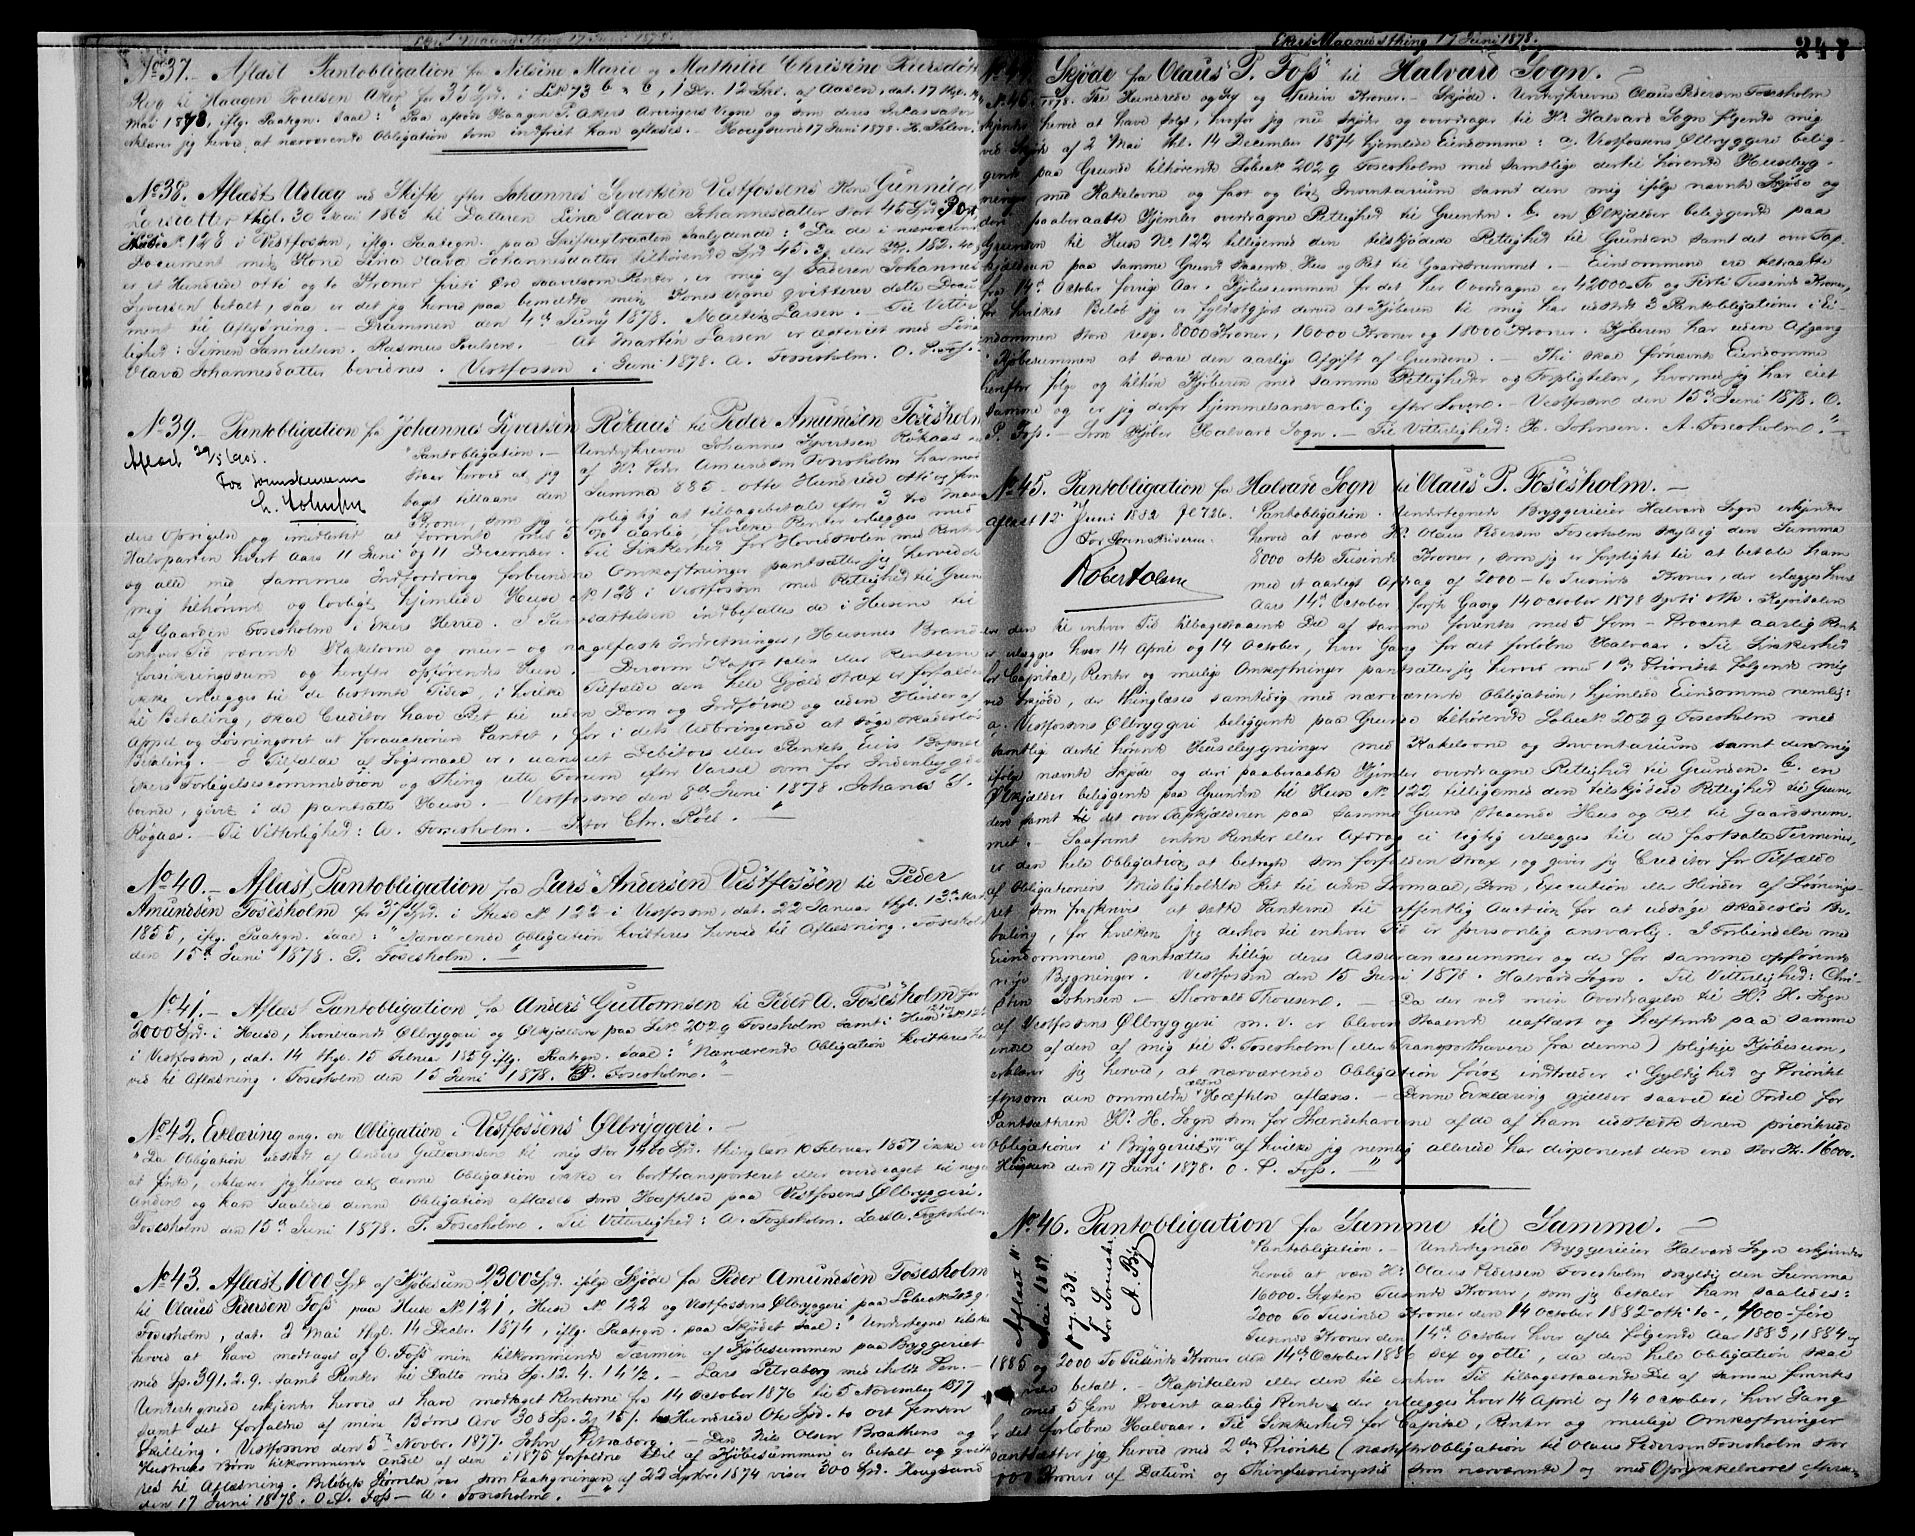 Ekers Maanedsthing 17 Juni 1878.
No 37. Aflæst Pantobligation fra Nilsine Marie og Mathilde Christine
Mai 1878, iflg. Paategn. saal:
erklærer jeg herved, at nærværende Obligation som indfriet kan aflæses. Hougsund 17 Juni 1878.
No 38. Aflæst Udlæg ved Skifte efter Johannes Syvertsen Vestfossens Kone Gunnild
Larsdatter thgl. 30 Mai 1863 til Datteren Lina Olava Johannesdatter stor 45 Spd.
No 128 i Vestfossen, iflg. Paategn. paa Skifteextracten saalydende: "Da de i nærværende
Document min Kone Lina Olava Johannesdatter tilhørende Spd 45.
er et Hundrede otti og to Kroner førti Øre saavelsom Renter, er mig af Faderen Johannes
Syvertsen betalt, saa er det jeg herved paa bemeldte min Kones Vegne qvitterer dette Docu-
ment til Aflysning. Drammen den 4de Juni 1878. Martin Larsen. Til Vitter-
lighed: Simen Samuelsen. Rasmus Poulsen. At Martin Larsen er ægteviet med Lina
Olava Johannesdatter bevidnes. Vestfossen i Juni 1878. A. Fosesholm. O. P. Foss.
No 39. Pantobligation fra Johannes Syvertsen Rökaas til Peder Amundsen Fosesholm
"Pantobligation. Undertegnede Johannes Syvertsen Rökaas
af Hr. Peder Amundsen Fossesholm har mod-
Summa 885 otte Hundrede otti og fem
Kroner, som jeg er pligtig at tilbagebetale efter 3 tre Maane-
ders Opsigelse og imidlertid at forrente med 5 % aarlig, hvilke Renter erlægges med
Halvparten hvert Aars 11 Juni og 11 December. Til Sikkerhed for Hovedstolen med Renter
og alle med sammes Indfordring forbundne Omkostninger pantsætter jeg herved de
mig tilhørende og lovligt hjemlede Huse No 128 i Vestfossen med Rettighed til Grund
af Gaarden Fosesholm i Ekers Herred. I Pantsættelsen indbefattes de i Husene til
enhver Tid værende Kakelovne og muur- og nagelfaste Indretninger, Husenes Brand-
forsikringssum og herefter opførendes Huse. Dersom Kapitalen eller Renterne
ikke erlægges til de bestemte Tider, i hvilke Tilfælde den hele Gjæld strax er forfalden
til Betaling, skal Creditor have Ret til uden Dom og Indførsel og uden Hinder af
Appel og Løsningsret at foranctionere Pantet, for i dets Udbringende at søge skadesløs
Betaling. I Tilfælde af Søgsmaal er, uanseet Debitors eller Pantets Eiers Bopæl
Ekers Forligelsescommission og Thing rette Forum efter Varsel som for Indenbygds
boende, givet i de pantsatte Huse. Vestfossen den 8de Juni 1878. Johanes S.
Røgaas. Til Vitterlighed: A. Fosesholm.
No 40. Aflæst Pantobligation fra Lars Andersen Vestfossen til Peder
Amundsen Fosesholm for 37 Spd. i Huse No 122 i Vestfossen, dat. 22 Januar thgl. 13
1855, iflg. Paategn. saal: "Nærværende Obligation kvitteres herved til Aflæsning. Fosesholm
den 15de Juni 1878. P. Fosesholm.
No 41. Aflæst Pantobligation fra Anders Guttormsen til Peder A. Fosesholm for
2000 Spd. i Huse, hvoriblandt Ølbryggeri og Ølkjælder paa Løb.No 202g Fosesholm samt i Huse No 122
i Vestfossen, dat. 14 thgl. 15 Februar 1859. iflg. Paategn. saal: "Nærværende Obligation kvitteres her-
ved til Aflæsning. Fosesholm den 15 Juni 1878. P. Fosesholm."
No 42. Erklæring ang. en Obligation i Vestfossens Ølbryggeri.
"Da Obligation udstedt af Anders Guttormsen til mig stor 1400 Spd. thinglæst 10 Februar 1857 ikke er
at finde, erklærer jeg herved at denne Obligation ikke er borttransporteret eller overdraget til nogen
Anden og kan saaledes denne Obligation aflæses som Hæftelse paa Vestfosens Ølbryggeri.
Fosesholm den 15de Juni 1878. P. Fosesholm. Til Vitterlighed: A. Fosesholm. Lars A. Fosesholm
No 43. Aflæst 1000 Spd. af Kjøbesum 2300 Spd. iflg Skjøde fra Peder Amundsen Fosesholm
til Olaus Pedersen Foss paa Huse No 121, Huse No 122 og Vestfossens Ølbryggeri paa Løbe No 202g
Fosesholm, dat. 2 Mai thgl. 14 Decbr. 1874, iflg. Paategn. paa Skjødet saal:
herved at have modtaget af O. Foss min tilkommende Termin af Kjøbesummen paa Bryggeriet
med Sp. 391.2.9. samt Renter til Datto med Sp. 12.4.14½. Lars Petraborg
Undertegnede erkjender herved at have modtaget Renterne fra 14 October 1876 til 5 November 1877
samt det forfaldne af mine Børns Arv 308 Sp. 2 15
Skilling. Vestfossen den 5te Novbr. 1877. John Petraborg. Den Nils Olsen Braathens og
Hustrues Børn tilkommende Andel af den i 1875 forfaldne Del af Kjøbesummen er betalt og qvit-
den 17 Juni 1878. O. P. Foss. A. Fosesholm.
Ekers Maanedsthing 17 Juni 1878.
247
Skjøde fra Olaus P. Foss til Halvard Sogn.
Kroner. Skjøde. Undertegnede Olaus Pedersen Fosesholm
herved at have solgt, hvorfor jeg nu skjøder og overdrager til Hr Halvard Sogn følgende mig
af 2 Mai thl. 14 December 1874 hjemlede Eiendomme: a. Vestfossens Ølbryggeri belig-
gende paa Grunde tilhørende Løbe No 202g Fosesholm med samtlige dertil hørende Husebyg-
med Kakelovne og fast og løst Inventarium samt den mig ifølge nævnte Skjøde og
paaberaabte Hjemler overdragne Rettighed til Grunden. b. en Ølkjælder beliggende paa
Grunden til Huse No 122 tilligemed den tilskjødede Rettighed til Grunden samt det over Tap-
kjælderen paa samme Grund staaende Hus og Ret til Gaardsrummet. Eiendommene ere tiltraadte
fra 14de October forrige Aar. Kjøbesummen for det her Overdragne er 42000 To og Firti Tusinde Kroner,
for hvilket Beløb jeg er fyldestgjort derved at Kjøberen til mig har udstedt 3 Pantobligationer i Ei-
endommen store resp. 8000 Kroner, 16000 Kroner og 18000 Kroner. Kjøberen har uden Afgang
i Kjøbesummen at svare den aarlige Afgift af Grundene. Thi skal fornævnte Eiendomme
herefter følge og tilhøre Kjøberen med samme Rettigheder og Forpligtelser, hvormed jeg har eiet
samme og er jeg derfor hjemmelsansvarlig efter Loven. Vestfossen den 15de Juni 1878. O.
P. Foss. Som Kjøber Halvard Sogn. Til Vitterlighed: K. Johnsen. A. Fosesholm."
No 45. Pantobligation fra Halvard Sogn til Olaus P. Fosesholm.
Aflæst 12 Juni 1882
"Pantobligation. Undertegnede Bryggerieier Halvard Sogn erkjender
herved at være Hr Olaus Pedersen Fosesholm skyldig den Summa
8000 otte Tusinde Kroner, som jeg er forpligtet til at betale ham
med et aarligt Afdrag af 2000 to Tusinde Kroner, der erlægges hvert
Aars 14de October første Gang 14 October 1878 sytti otte. Kapitalen
eller den til enhver Tid tilbagestaaende Del af samme forrentes med 5 fem Procent aarlig Rente
der erlægges hver 14 April og 14 October, hver Gang for det forløbne Halvaar. Til Sikkerhed
for Capital, Renter og mulige Omkostninger pantsætter jeg herved med 1ste Prioritet følgende mig
ved Skjøde, der thinglæses samtidig med nærværende Obligation, hjemlede Eiendomme nemlig:
a. Vestfossens Ølbryggeri beliggende paa Grunde tilhørende Løbe No 202g Fosesholm med
samtlige dertil hørende Husebygninger med Kakelovne og Inventarium samt den mig
ifølge nævnte Skjøde og deri paaberaabte Hjemler overdragne Rettighed til Grunden. b. en
Ølkjælder beliggende paa Grunden til Huse No 122 tilligemed den tilskjødede Rettighed til Grun-
den samt til det over Tapkjælderen paa samme Grund staaende Hus og Ret til Gaardsrum-
met. Saafremt enten Renter eller Afdrag ei rigtig erlægges til de fastsatte Terminer,
er den hele Obligation at betragte som forfalden strax, og giver jeg Creditor for Tilfælde
af Obligationens Misligholdelse Ret til uden Lovmaal, Dom, Execution eller Hinder af Løsnings-
ret som forskrevet at sætte Panterne til offentlig Auction for at udsøge skadesløs Be-
taling, for hvilken jeg derhos til enhver Tid er personlig ansvarlig. I Forbindelse med
Eiendommene pantsættes tillige deres Assurancesummer og de for samme opførende
nye Bygninger. Vestfossen den 15 Juni 1878. Halvard Sogn. Til Vitterlighed: Chri-
stin Johnsen. Thorvald Thoresen. Da der ved min Overdragelse til Hr. H. Sogn
af Vestfossens Ølbryggeri m. v. er bleven staaende uaflæst og hæftende paa samme
endel af den af mig til P. Fosesholm (eller Transporthavere fra denne) pligtige Kjøbesum,
erklærer jeg herved, at nærværende Obligation først indtræder i Gyldighed og Prioritet
eftersom den ommeldte ældre Hæftelse aflæses. Denne Erklæring gjælder saavel til Fordel for
Pantsætteren Hr. H. Sogn som for Ihændehaverne af de af ham udstedte senere prioriterede
Obligationer i Bryggeriet m.v. af hvilke jeg nemlig allerede har disponeret den ene stor Kr. 16000.
Hougsund den 17 Juni 1878. O. P. Foss."
No 46. Pantobligation fra Samme til Samme.
Aflæst 11 Mai 1889
"Pantobligation. Undertegnede Bryggerieier Halvard Sogn erkjender
herved at være Hr. Olaus Pedersen Fosesholm skyldig den Summa
16000 Sexten Tusinde Kroner, som jeg betaler ham saaledes:
2000 To Tusinde Kroner den 14 October 1882 otti to, 4000 fire
Tusinde Kroner den 14de October hver af de følgende Aar 1883, 1884 og
1885 og 2000 To Tusinde Kroner den 14de October 1886 sex og otti, da den hele Obligation skal
være betalt. Kapitalen eller den til enhver Tid tilbagestaaende Del af samme forrentes
med 5 fem Procent aarlig Rente, der erlægges hver 14 April og 14 October, hver Gang
for det forløbne Halvaar. Til Sikkerhed for Capital, Renter og mulige Omkostninger
pantsætter jeg herved med 2den Prioritet (næstefter Obligation til Olaus Pedersen Fosesholm stor
8000 Kroner af Datum og Thinglæsningstid som nærværende) og med Oprykkelsesret